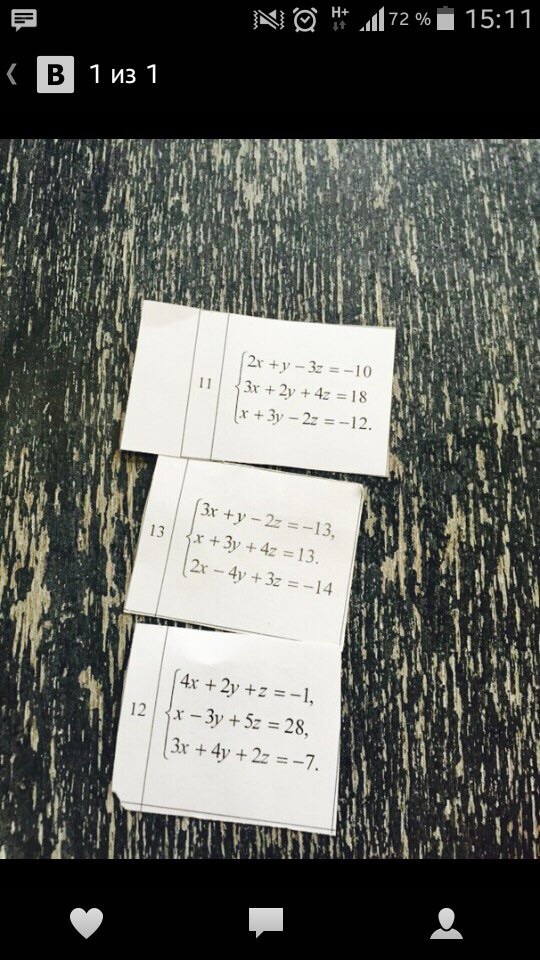 H+
72 %
15:11
B
1 из 1
11
2x + y − 3z = −10
3x + 2y + 4z = 18
x + 3y − 2z = −12.
13
3x + y − 2z = −13,
x + 3y + 4z = 13.
2x − 4y + 3z = −14
12
4x + 2y + z = −1,
x − 3y + 5z = 28,
3x + 4y + 2z = −7.